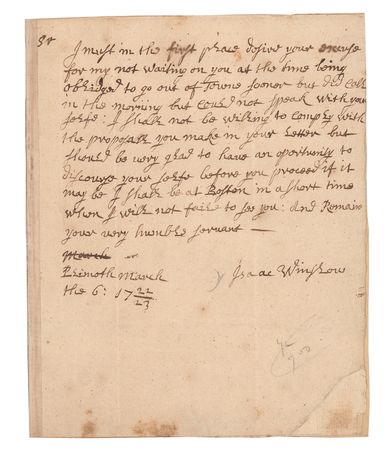 Sr
I must in the first place desire your excuse
for my not waiting on you at the time being
obliedged to go out of Towne sooner but did Call
in the morning but Could not speak with your
selfe: I shall not be wiling to Comply with
the proposalls you make in your Letter but
should be very glad to have an oportunity to
discourse your selfe before you proceed if it
may be I shall be at Boston in a short time
when I will not faile to see you: and Remain
your very humble servant —
March
Plimoth March
the 6: 17 22/23
Isaac Winslow